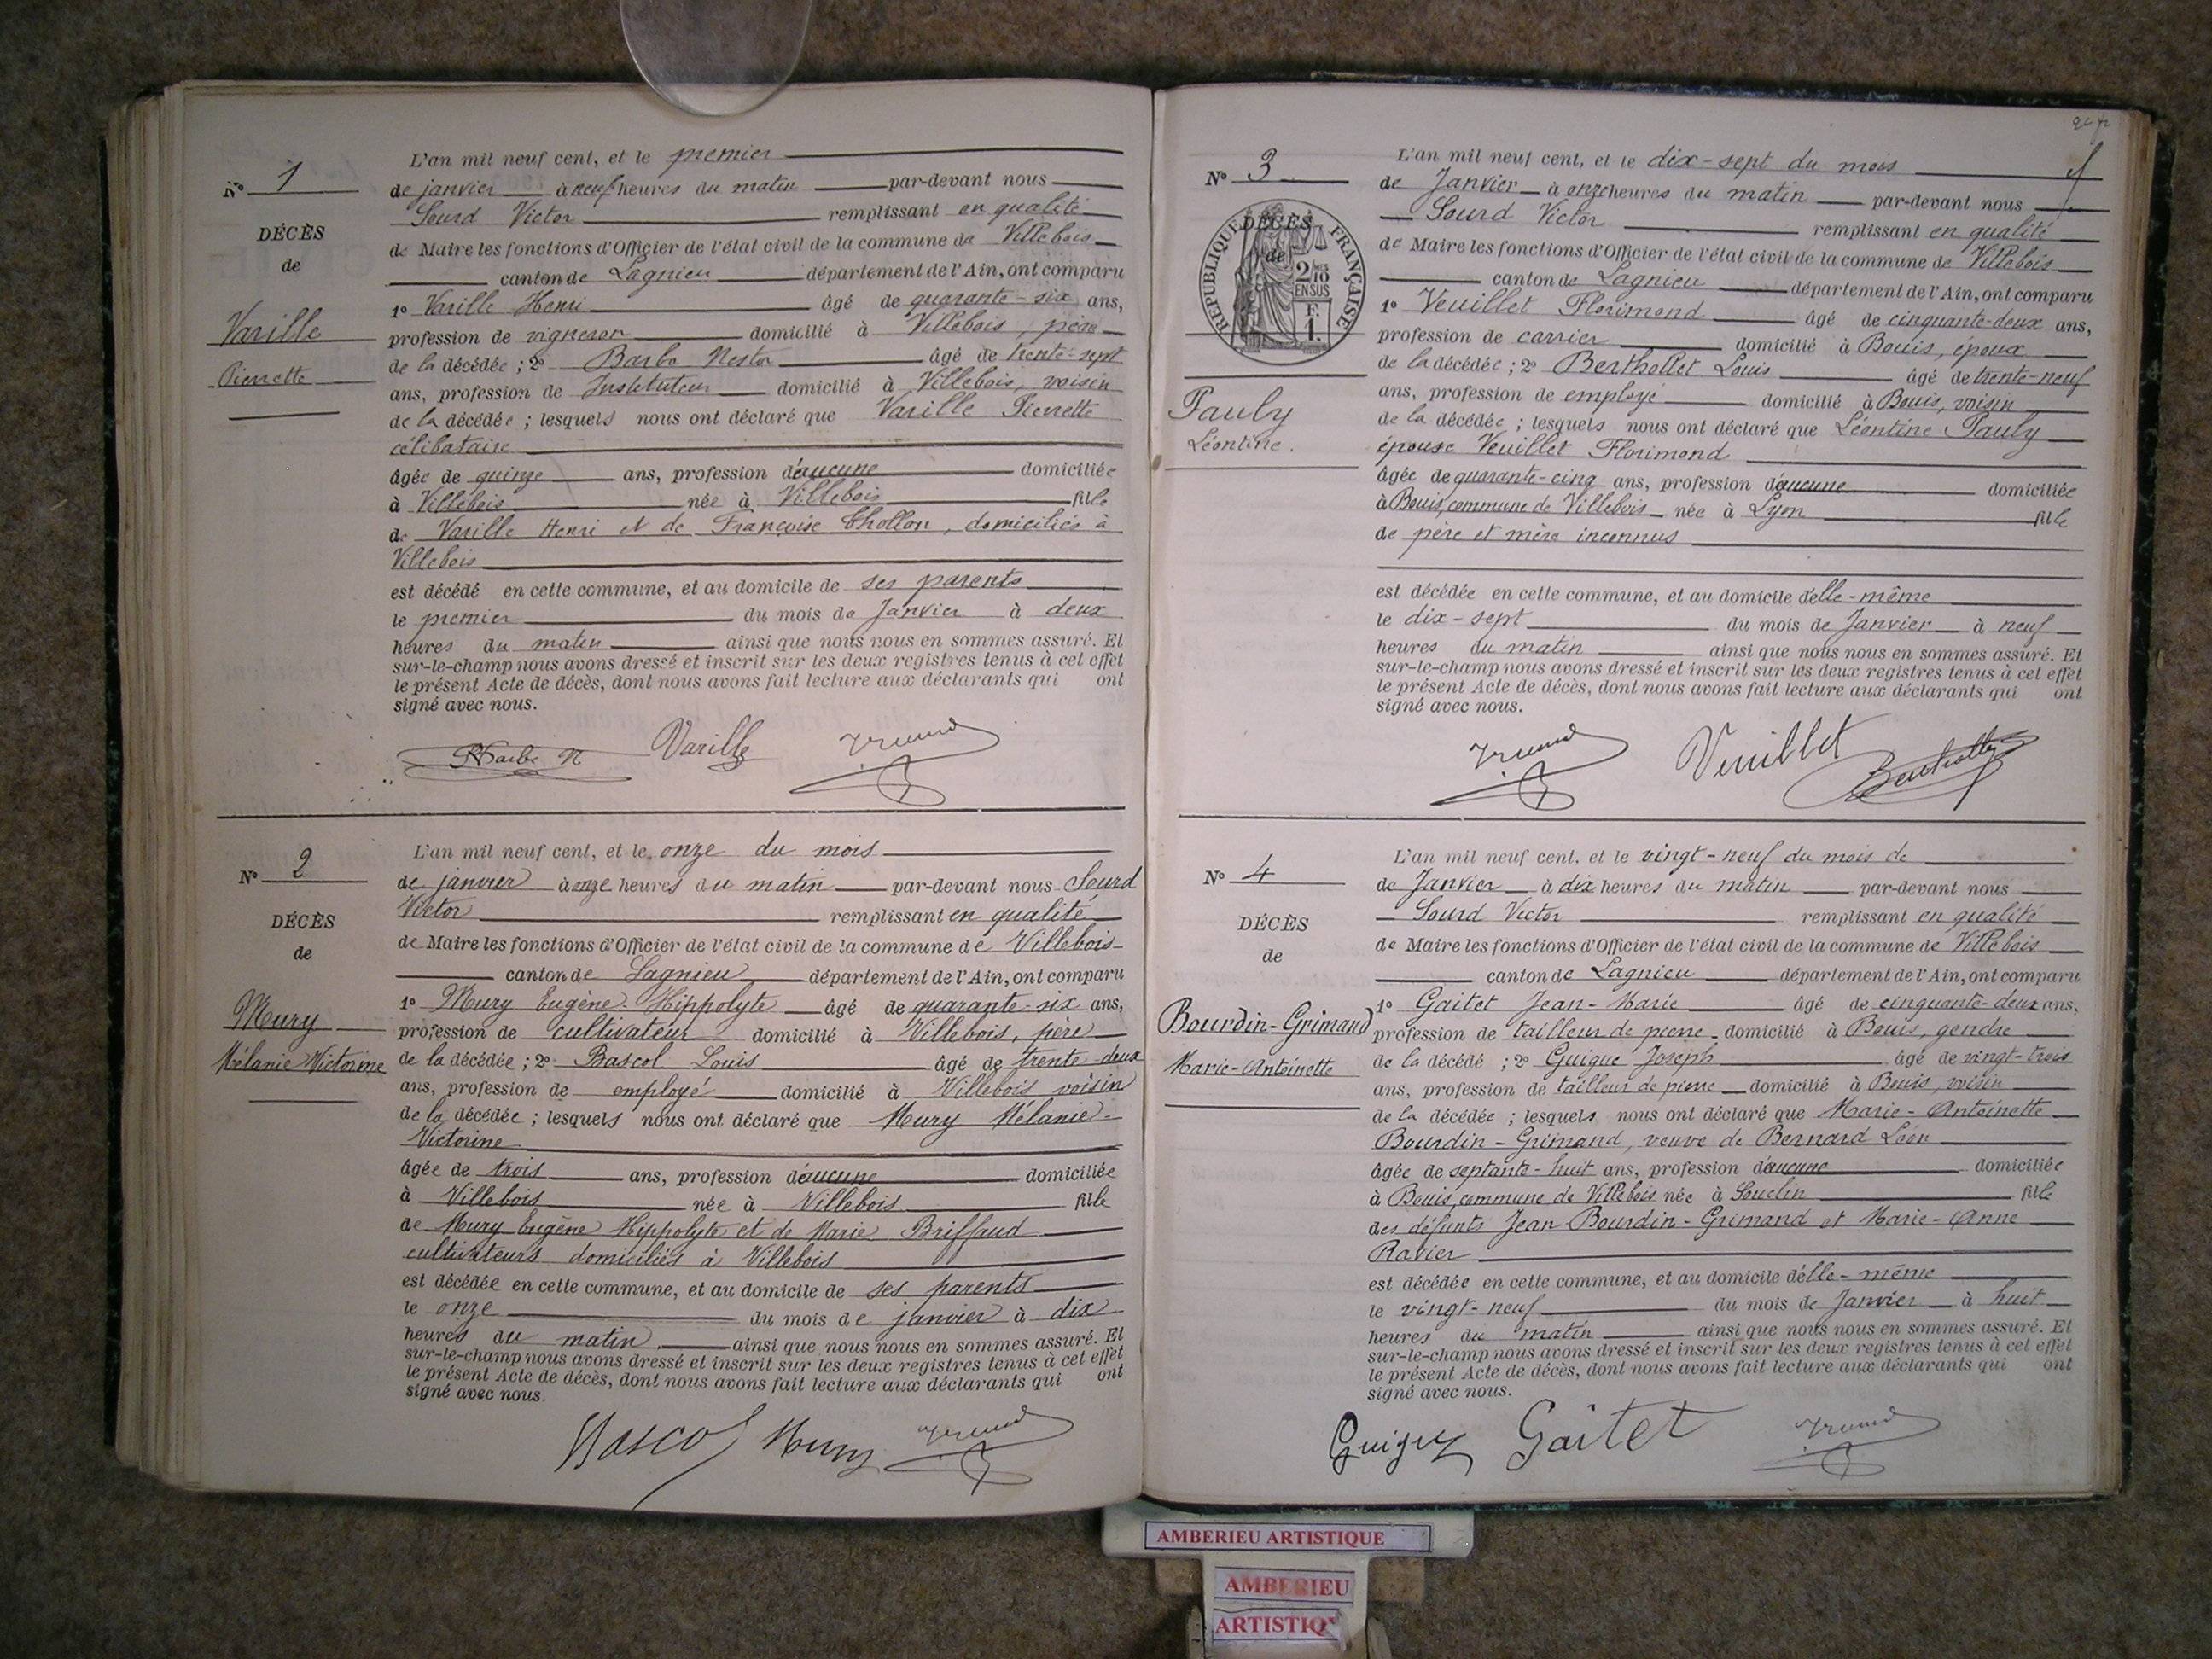 N° 1
DÉCÈS
de
Varille
Pierrette
L'an mil neuf cent, et le premier
de janvier à neuf heures du matin par-devant nous
Sourd Victor remplissant en qualité
de Maire les fonctions d'Officier de l'état civil de la commune de Villebois
canton de Lagnieu département de l'Ain, ont comparu
1° Varille Henri âgé de quarante-six ans,
profession de vigneron domicilié à Villebois, père
de la décédée ; 2° Barbe Nestor âgé de trente-sept
ans, profession de Instituteur domicilié à Villebois, voisin
de la décédée ; lesquels nous ont déclaré que Varille Pierrette
célibataire
âgée de quinze ans, profession d'aucune domiciliée
à Villebois née à Villebois fille
de Varille Henri et de Françoise Chollon, domiciliés à
Villebois
est décédé en cette commune, et au domicile de ses parents
le premier du mois de Janvier à deux
heures du matin ainsi que nous nous en sommes assuré. Et
sur-le-champ nous avons dressé et inscrit sur les deux registres tenus à cet effet
le présent Acte de décès, dont nous avons fait lecture aux déclarants qui ont
signé avec nous.
Barbe N Varille
N° 2
DÉCÈS
de
Mury
Mélanie Victorine
L'an mil neuf cent, et le onze du mois
de janvier à onze heures du matin par-devant nous Sourd
Victor remplissant en qualité
de Maire les fonctions d'Officier de l'état civil de la commune de Villebois
canton de Lagnieu département de l'Ain, ont comparu
1° Mury Eugène-Hippolyte âgé de quarante-six ans,
profession de cultivateur domicilié à Villebois, père
de la décédée ; 2° Bascol Louis âgé de trente-deux
ans, profession de employé domicilié à Villebois voisin
de la décédée ; lesquels nous ont déclaré que Mury Mélanie-
Victorine
âgée de trois ans, profession d'aucune domiciliée
à Villebois née à Villebois fille
de Mury Eugène Hippolyte et de Marie Briffaud
cultivateurs domiciliés à Villebois
est décédée en cette commune, et au domicile de ses parents
le onze du mois de janvier à dix
heures du matin ainsi que nous nous en sommes assuré. Et
sur-le-champ nous avons dressé et inscrit sur les deux registres tenus à cet effet
le présent Acte de décès, dont nous avons fait lecture aux déclarants qui ont
signé avec nous.
Bascol Mury
N° 3
DÉCÈS
de
RÉPUBLIQUE FRANÇAISE
2/10
EN SUS
F.
1.
Pauly
Léontine.
L'an mil neuf cent, et le dix-sept du mois
de Janvier à onze heures du matin par-devant nous
Sourd Victor remplissant en qualité
de Maire les fonctions d'Officier de l'état civil de la commune de Villebois
canton de Lagnieu département de l'Ain, ont comparu
1° Veuillet Florimond âgé de cinquante-deux ans,
profession de carrier domicilié à Bouis, époux
de la décédée ; 2° Berthollet Louis âgé de trente-neuf
ans, profession de employé domicilié à Bouis, voisin
de la décédée ; lesquels nous ont déclaré que Léontine Pauly
épouse Veuillet Florimond
âgée de quarante-cinq ans, profession d'aucune domiciliée
à Bouis, commune de Villebois née à Lyon fille
de père et mère inconnus
est décédée en cette commune, et au domicile d'elle-même
le dix-sept du mois de Janvier à neuf
heures du matin ainsi que nous nous en sommes assuré. Et
sur-le-champ nous avons dressé et inscrit sur les deux registres tenus à cet effet
le présent Acte de décès, dont nous avons fait lecture aux déclarants qui ont
signé avec nous.
Veuillet
N° 4
DÉCÈS
de
Bourdin-Grimand
Marie-Antoinette
L'an mil neuf cent, et le vingt-neuf du mois de
de Janvier à dix heures du matin par-devant nous
Sourd Victor remplissant en qualité
de Maire les fonctions d'Officier de l'état civil de la commune de Villebois
canton de Lagnieu département de l'Ain, ont comparu
1° Gaitet Jean-Marie âgé de cinquante-deux ans,
profession de tailleur de pierre domicilié à Bouis, gendre
de la décédé ; 2° Guigue Joseph âgé de vingt-trois
ans, profession de tailleur de pierre domicilié à Bouis, voisin
de la décédée ; lesquels nous ont déclaré que Marie-Antoinette
Bourdin-Grimand, veuve de Bernard Léon
âgée de septante-huit ans, profession d'aucune domiciliée
à Bouis, commune de Villebois née à Souclin fille
des défunts Jean Bourdin-Grimand et Marie-Anne
Ravier
est décédée en cette commune, et au domicile d'elle-même
le vingt-neuf du mois de Janvier à huit
heures du matin ainsi que nous nous en sommes assuré. Et
sur-le-champ nous avons dressé et inscrit sur les deux registres tenus à cet effet
le présent Acte de décès, dont nous avons fait lecture aux déclarants qui ont
signé avec nous.
Guigue Gaitet
AMBERIEU ARTISTIQUE
AMBERIEU
ARTISTIQ